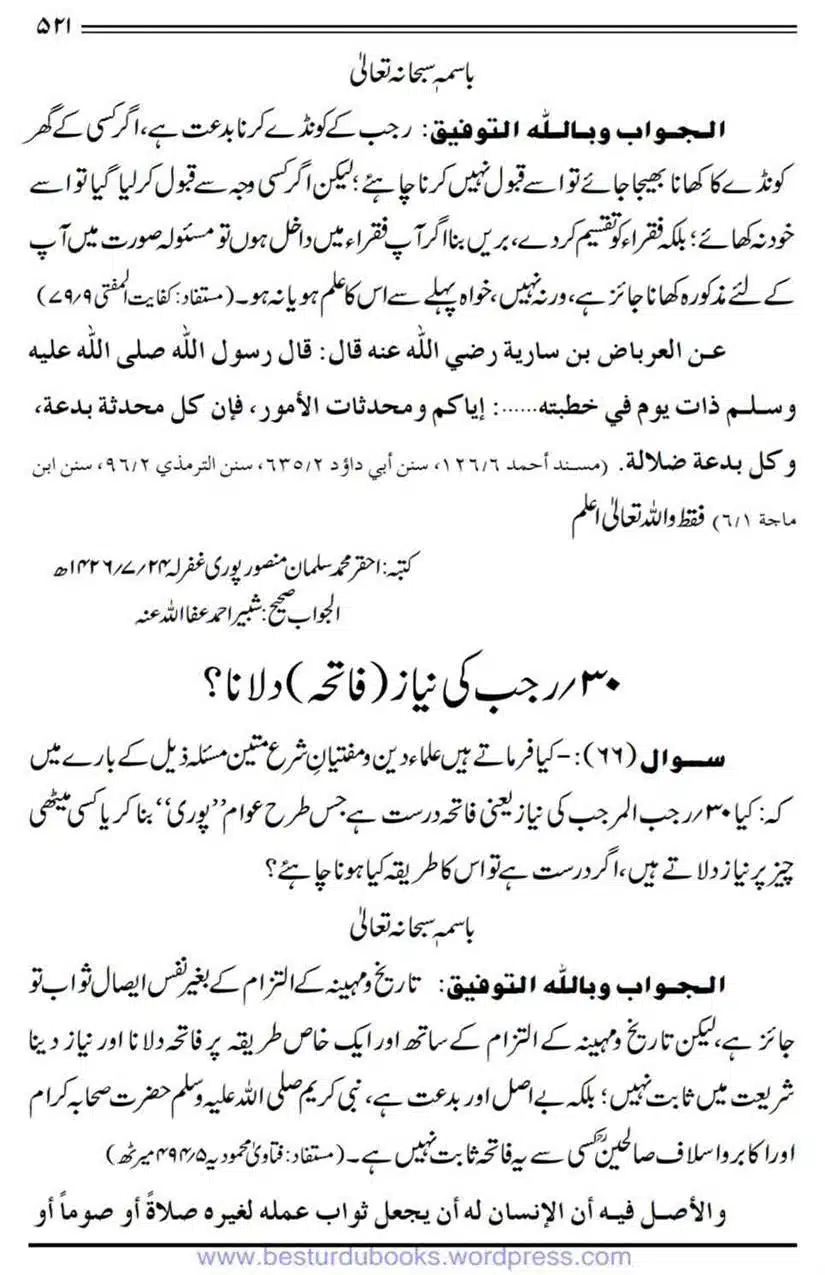 ۵۲۱
باسمہٖ سبحانہ تعالیٰ
الجواب وباللہ التوفیق: رجب کے کونڈے کرنا بدعت ہے، اگر کسی کے گھر
کونڈے کا کھانا بھیجا جائے تو اسے قبول نہیں کرنا چاہئے؛ لیکن اگر کسی وجہ سے قبول کرلیا گیا تو اسے
خود نہ کھائے؛ بلکہ فقراء کو تقسیم کردے، بریں بنا اگر آپ فقراء میں داخل ہوں تو مسئولہ صورت میں آپ
کے لئے مذکورہ کھانا جائز ہے، ورنہ نہیں، خواہ پہلے سے اس کا علم ہو یا نہ ہو۔ (مستفاد: کفایت المفتی ۹؍۷۹)
عن العرباض بن سارية رضي الله عنه قال: قال رسول الله صلى الله عليه
وسلم ذات يوم في خطبته......: إياكم ومحدثات الأمور، فإن كل محدثة بدعة،
وكل بدعة ضلالة. (مسند أحمد ١٢٦/٦، سنن أبي داؤد ٦٣٥/٢، سنن الترمذي ٩٦/٢، سنن ابن
ماجة ٦/١) فقط واللہ تعالیٰ اعلم
کتبہ: احقر محمد سلمان منصور پوری غفرلہ ۲۴؍۷؍۱۴۲۶ھ
الجواب صحیح: شبیر احمد عفا اللہ عنہ
۳۰؍رجب کی نیاز (فاتحہ) دلانا؟
سوال (۶۶):- کیا فرماتے ہیں علماء دین ومفتیانِ شرع متین مسئلہ ذیل کے بارے میں
کہ: کیا ۳۰؍رجب المرجب کی نیاز یعنی فاتحہ درست ہے جس طرح عوام ’’پوری‘‘ بنا کر یا کسی میٹھی
چیز پر نیاز دلاتے ہیں، اگر درست ہے تو اس کا طریقہ کیا ہونا چاہئے؟
باسمہٖ سبحانہ تعالیٰ
الجواب وباللہ التوفیق: تاریخ ومہینہ کے التزام کے بغیر نفس ایصال ثواب تو
جائز ہے، لیکن تاریخ ومہینہ کے التزام کے ساتھ اور ایک خاص طریقہ پر فاتحہ دلانا اور نیاز دینا
شریعت میں ثابت نہیں؛ بلکہ بے اصل اور بدعت ہے، نبی کریم صلی اللہ علیہ وسلم حضرت صحابہ کرام
اور اکابر واسلاف صالحینؒ کسی سے یہ فاتحہ ثابت نہیں ہے۔ (مستفاد: فتاویٰ محمودیہ ۵؍۴۹۴ میرٹھ)
والأصل فيه أن الإنسان له أن يجعل ثواب عمله لغيره صلاةً أو صوماً أو
www.besturdubooks.wordpress.com